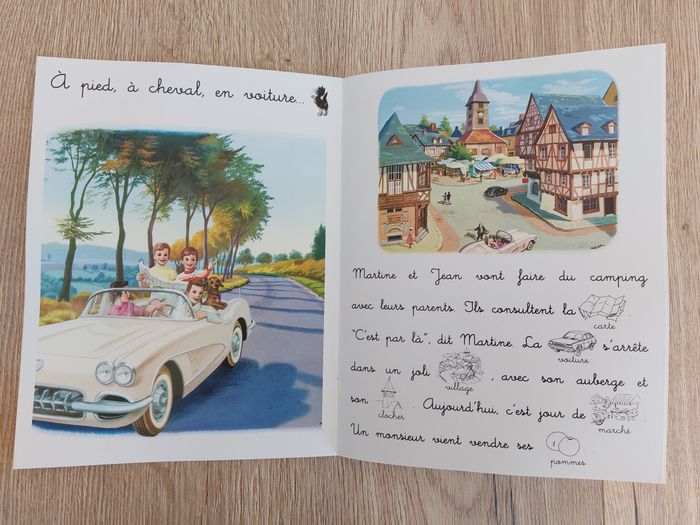 À pied, à cheval, en voiture...
Martine et Jean vont faire du camping
avec leurs parents. Ils consultent la
carte
"C'est par là", dit Martine. La s'arrête
voiture
dans un joli , avec son auberge et
village
son . Aujourd'hui, c'est jour de
clocher
marché
Un monsieur vient vendre ses
pommes